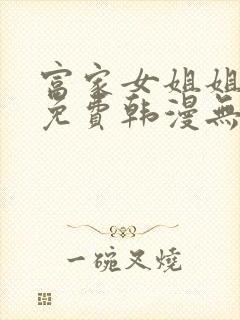 富家女姐姐
免費韩漫無
一碗又燒